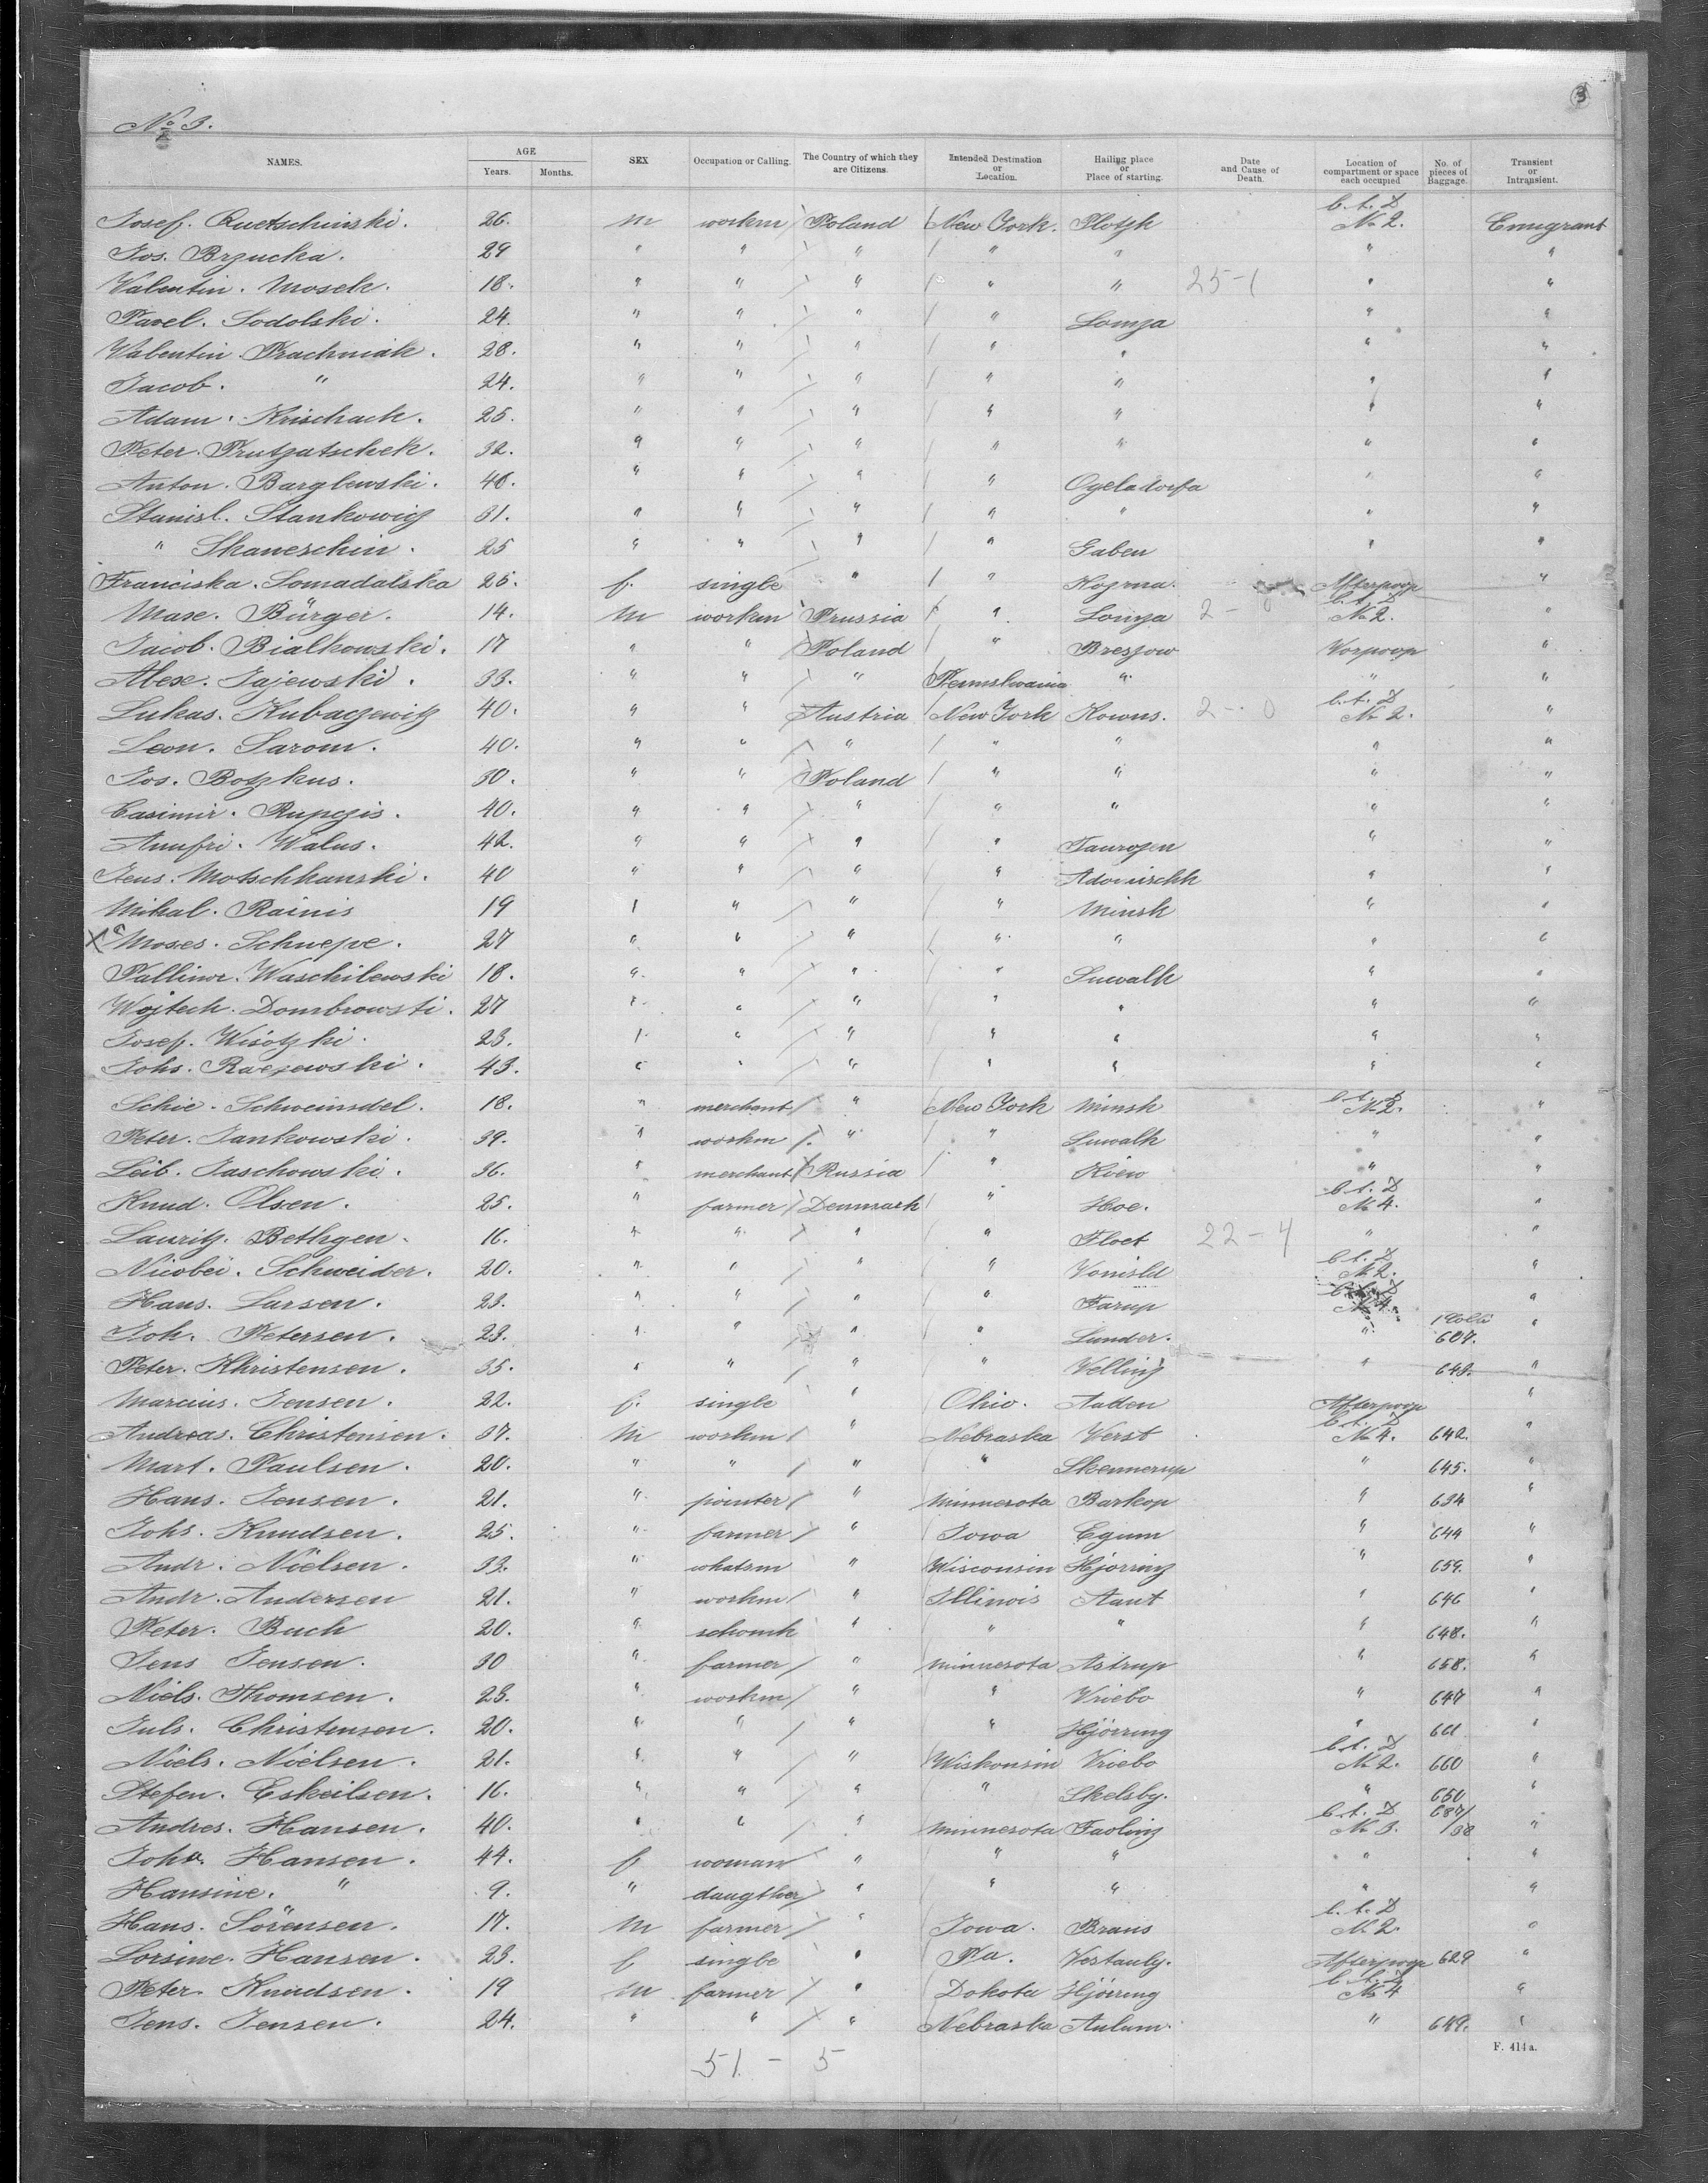 No 3.
3
NAMES. AGE Years. Months. SEX Occupation or Calling. The Country of which they are Citizens. Intended Destination or Location. Hailing place or Place of starting. Date and Cause of Death. Location of compartment or space each occupied No. of pieces of Baggage. Transient or Intransient.
Josef. Quetschinski. 26. m workm Poland New York. Plotzk C.t. D No 2. Emigrant
Jos. Brzucka. 29 " " " " " " "
Valentin. Mosek. 18. " " " " " 25-1 " "
Pavel. Sodolski. 24. " " " " Lomza " "
Valentin. Prachniak. 28. " " " " " " "
Jacob. " 24. " " " " " " "
Adam. Krischack. 25. " " " " " " "
Peter. Prutzatschek. 32. " " " " " " "
Anton. Barglewski. 48. " " " " Ogeladorfa " "
Stanisl. Stankowicz 31. " " " " " " "
" Skaneschin. 25 " " " " Gaben " "
Franciska. Somadalska 25. f. single " " Kozrna. Afterpoop "
Maxe. Bürger. 14. m workm Prussia " Lomza 2-0 C.t. D No 2. "
Jacob. Bialkowski. 17 " " Poland " Breszow Vorpoop "
Alexe. Jajewski. 33. " " " Pennslvania " " "
Lukas. Kubaczewitz 40. " " Austria New York Kowns. 2-0 C.t. D No 2. "
Leon. Sarom. 40. " " " " " " "
Jos. Botzkus. 30. " " Poland " " " "
Casimir. Rupczis. 40. " " " " " " "
Annfri. Walus. 42. " " " " Taurogen " "
Jeus. Motschkanski. 40 " " " " Adomischk " "
Mikal. Rainis 19 " " " " Minsk " "
X Moses. Schnepe. 27 " " " " " " "
Pallinor. Waschilewski 18. " " " " Suwalk " "
Wojtech. Dombrowsti. 27 " " " " " " "
Josef. Wisotzki. 23. " " " " " " "
Johs. Raczewski. 43. " " " " " " "
Schie. Schweinsdel. 18. " merchant " New York Minsk C.t. D No 2. "
Peter. Jankowski. 39. " workm " " Suwalk " "
Leib. Jaschowski. 36. " merchant Russia " Kiew " "
Knud. Olsen. 25. " farmer Denmark " Hoe. C.t. D No 4. "
Lauritz. Bethgen. 16. " " " " Floet 22-4 " "
Nicobei. Schweider. 20. " " " " Vonisld C.t. D No 2. "
Hans. Larsen. 23. " " " " Farup C.t. D No 4. "
Joh. Petersen. 23. " " " " Lunder. " 1 Collo 607. "
Peter. Khristensen. 35. " " " " Velling " 643. "
Marcius. Jensen. 22. f. single " Ohio. Aadden Afterpoop "
Andreas. Christensen. 37. m workm " Nebraska Verst C.t. D No 4. 642. "
Mart. Paulsen. 20. " " " " Skennerup " 645. "
Hans. Jensen. 21. " pointer " Minnesota Barkop " 634 "
Johs. Knudsen. 25. " farmer " Iowa Egum " 644 "
Andr. Nielsen. 33. " whatsm " Wisconsin Hjorring " 659. "
Andr. Andersen 21. " workm " Illinois Aant " 646 "
Peter. Buch 20. " schomk " " " " 648. "
Jens Jensen. 30 " farmer " Minnesota Astrup " 658. "
Niels. Thomsen. 23. " workm " " Vriebo " 647 "
Juls. Christensen. 20. " " " " Hjörring " 661 "
Niels. Nielsen. 21. " " " Wiskonsin Vriebo C.t. D No 2. 660 "
Stefen. Eskeilsen. 16. " " " " Skelsby. " 650 "
Andres. Hansen. 40. " " " Minnesota Faoling C.t. D No 3. 687/88 "
Joha. Hansen. 44. f woman " " " " "
Hansine. " 9. " daugther " " " " "
Hans. Sörensen. 17. m farmer " Iowa. Brans C.t. D No 2. "
Lorsine. Hansen. 23. f single " Pa. Vestauly. Afterpoop 629 "
Peter. Knudsen. 19 m farmer " Dokota Hjörring C.t. D No 4 "
Jens. Jensen. 24. " " " Nebraska Aulum. " 649. "
F. 414a.
51 - 5